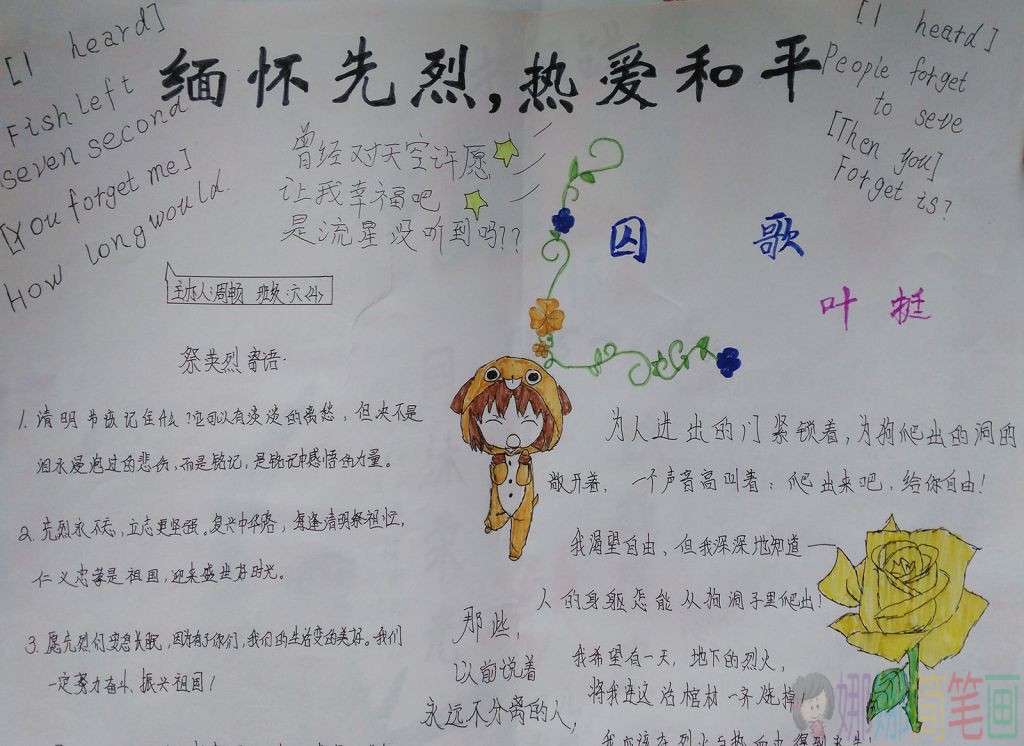 [I heard]
Fish left
seven second
[You forget me]
How long would.
缅怀先烈,热爱和平
[I heard]
People forget
to seve
[Then you]
Forget is?
曾经对天空许愿
让我幸福吧
是流星没听到吗??
主办人:周畅 班级:六<4>
囚歌
叶挺
祭英烈寄语.
1. 清明节该记住什么?它可以有淡淡的离愁,但决不是
泪水浸泡过的悲伤,而是铭记,是铭记中感悟的力量。
2. 先烈永不忘,立志更坚强。复兴中华路,每逢清明祭祖忙,
仁义忠孝是祖国,迎来盛世好时光。
3. 愿先烈们安息长眠,因为有了你们,我们的生活变的美好。我们
一定努力奋斗、振兴祖国!
为人进出的门紧锁着,为狗爬出的洞的
敞开着,一个声音高叫着:爬出来吧,给你自由!
我渴望自由,但我深深地知道—
人的身躯怎能从狗洞子里爬出!
我希望有一天,地下的烈火,
将我连这活棺材一齐烧掉!
那些,
以前说着
永远不分离的人,
娜娜简笔画